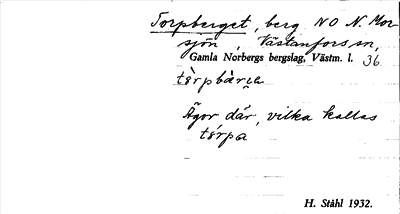 Torpberget, berg NO N. Mor-
sjön, Västanfors sn,
Gamla Norbergs bergslag, Västm. l. 36
tòrpbær̨e̝
Ägor där, vilka kallas
tórpa
H. Ståhl 1932.